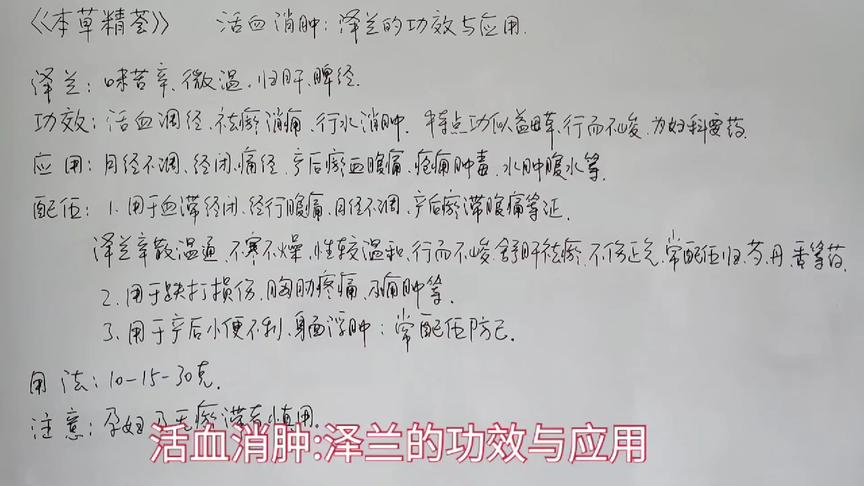 《本草精荟》 活血消肿:泽兰的功效与应用.
泽兰:味苦辛、微温.归肝、脾经.
功效:活血调经、祛瘀消痈、行水消肿.特点功似益母草,行而不峻,为妇科要药.
应用:月经不调、经闭、痛经、产后瘀血腹痛、疮痈肿毒、水肿腹水等.
配伍:1.用于血滞经闭、经行腹痛、月经不调、产后瘀滞腹痛等证.
泽兰辛散温通,不寒不燥,性较温和,行而不峻.舒肝祛瘀,不伤正气,常配伍归、芍、丹、香等药.
2.用于跌打损伤、胸胁疼痛、痈肿等.
3.用于产后小便不利、身面浮肿:常配伍防己.
用法:10-15-30克.
注意:孕妇及无瘀滞者慎用.
活血消肿:泽兰的功效与应用